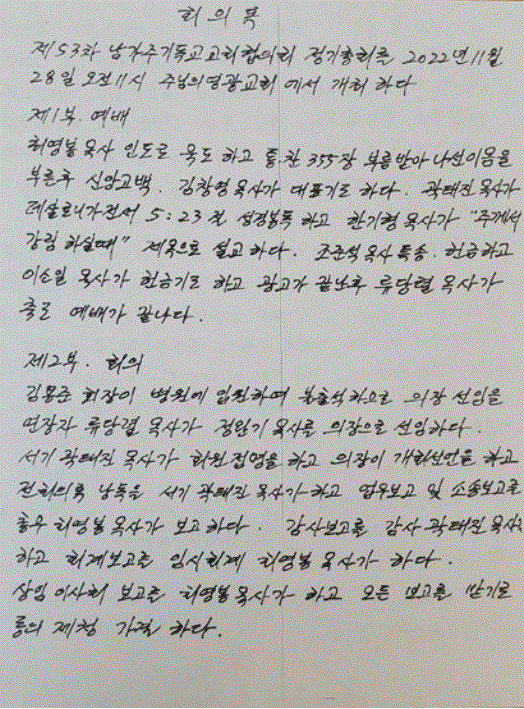 회의록
제53차 남가주기독교교회협의회 정기총회를 2022년 11월
28일 오전11시 주님의영광교회 에서 개최 하다
제1부. 예배
최영봉 목사 인도로 묵도 하고 통찬 355장 부름받아 나선이몸을
부른후 신앙고백. 김창영목사가 대표기도 하다. 곽태진 목사가
데살로니가전서 5:23절 성경봉독 하고 한기형 목사가 "주께서
강림 하실때" 제목으로 설교하다. 조준석 목사 특송. 헌금하고
이소일 목사가 헌금기도 하고 광고가 끝난후 류당렬 목사가
축도 예배가 끝나다.
제2부. 회의
김용준 회장이 병원에 입원하여 불출석 하므로 의장 선임을
연장자 류당렬 목사가 정완기 목사를 의장으로 선임하다.
서기 곽태진 목사가 회원점명을 하고 의장이 개회선언을 하고
전회의록 낭독을 서기 곽태진 목사가 하고 업무보고 및 소송보고를
총무 최영봉 목사가 보고 하다. 감사보고를 감사 곽태진 목사
하고 회계보고를 임시회계 최영봉 목사가 하다.
상임 이사회 보고를 최영봉 목사가 하고 모든 보고를 받기로
동의 제청 가결 하다.